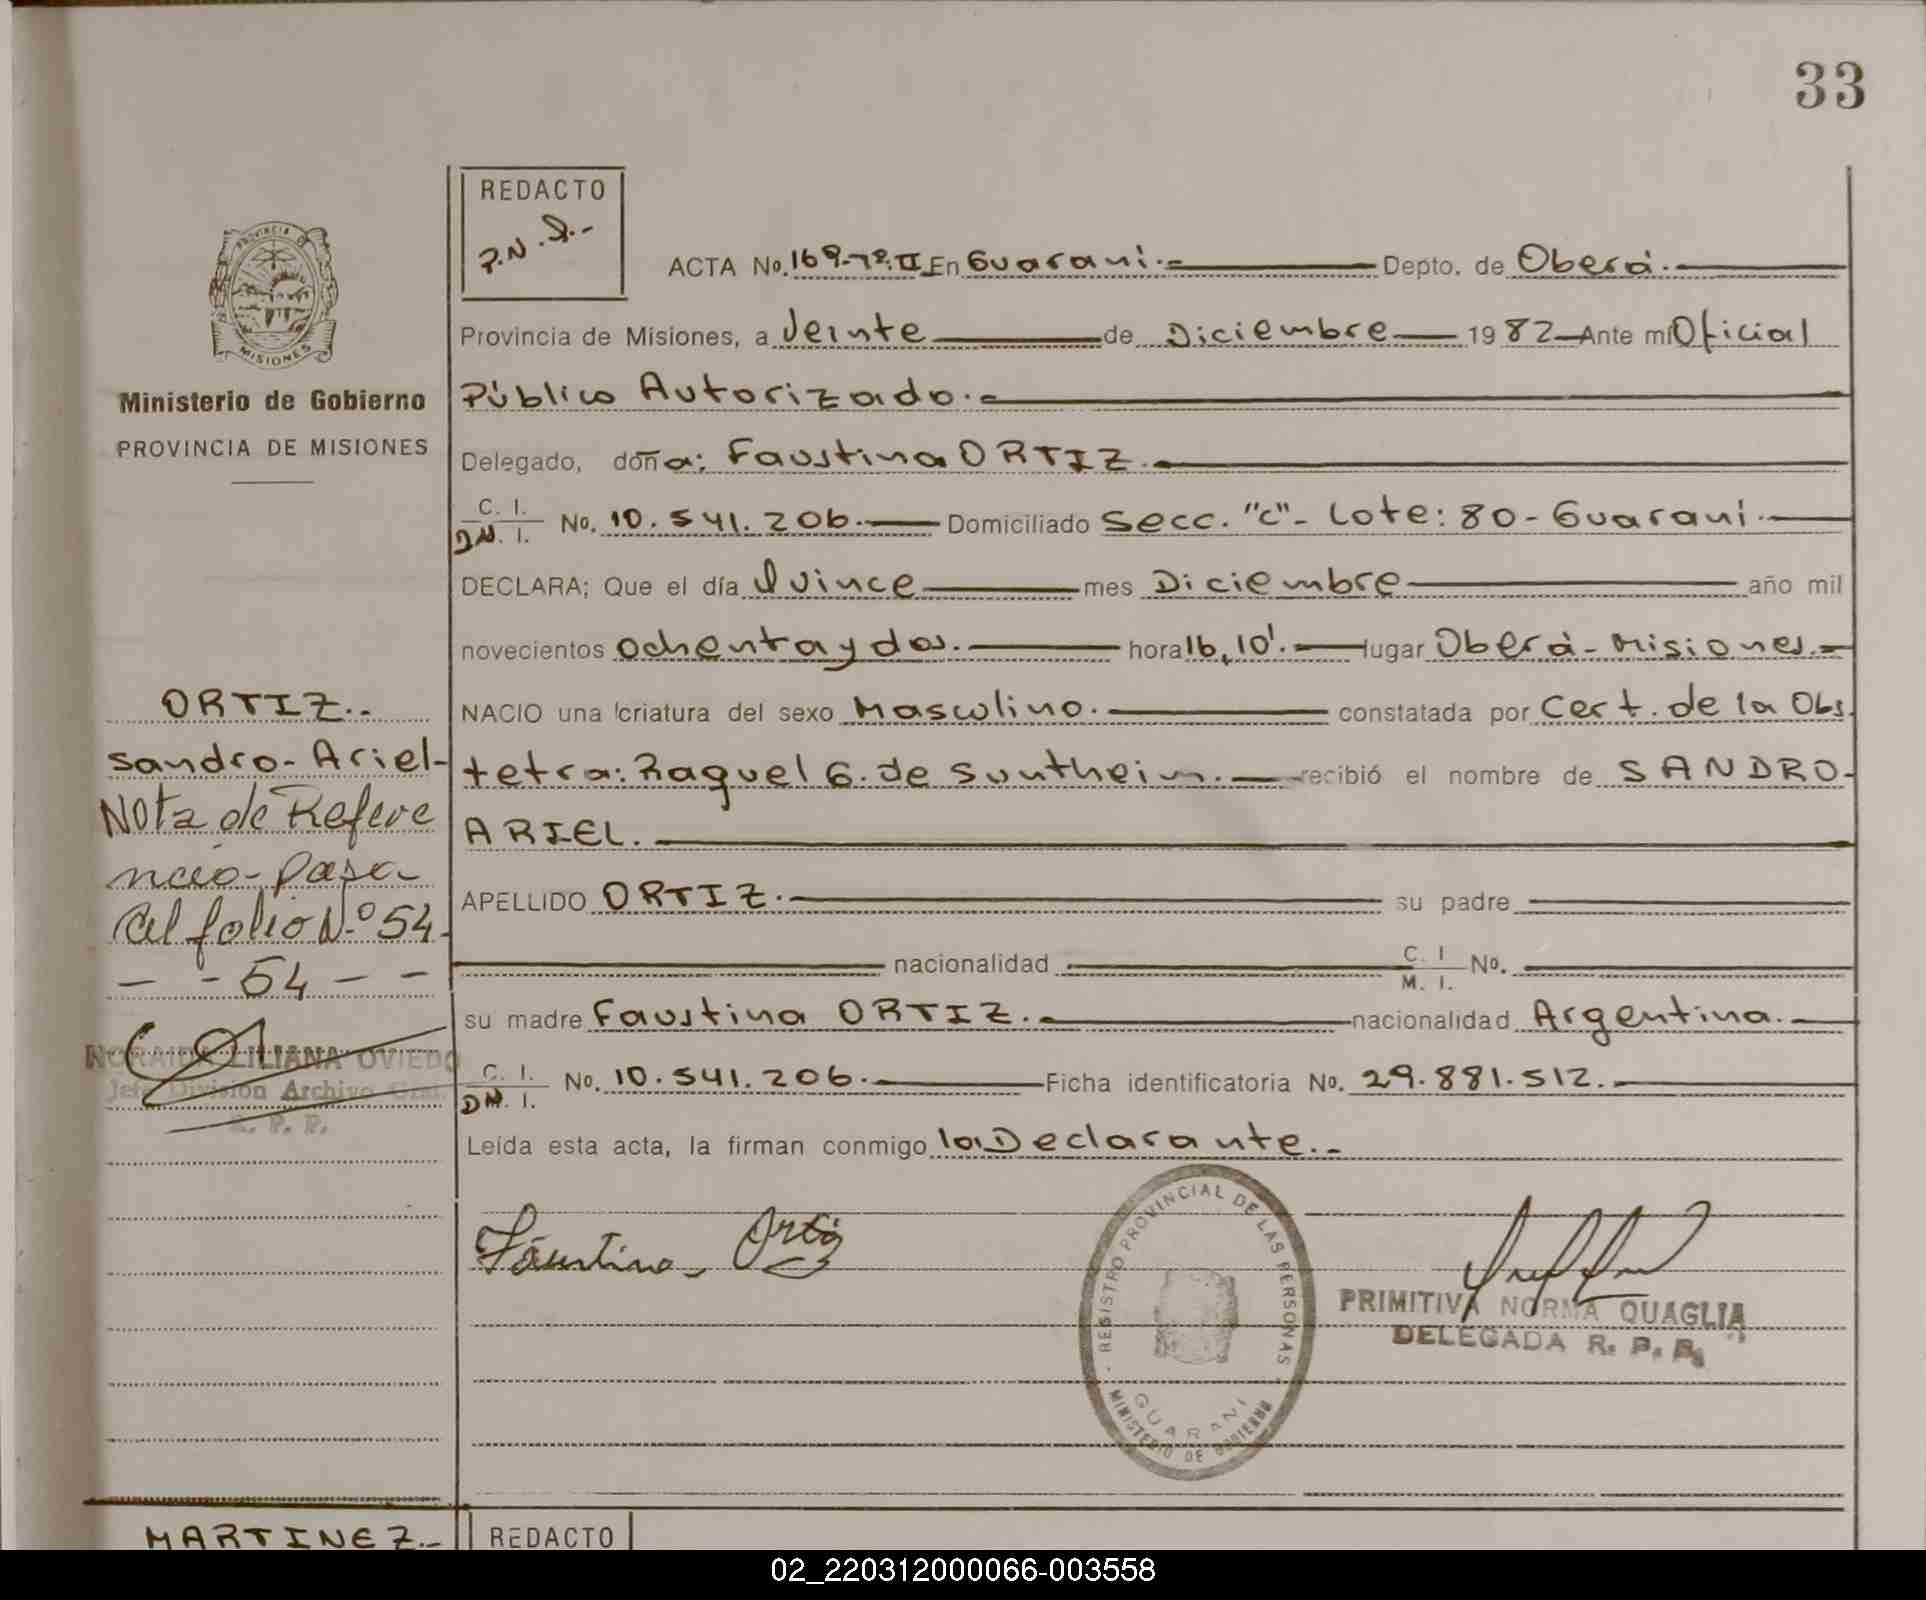 33
REDACTO
P.N.Q.-
ACTA No. 169-Tº.II En Guaraní.- Depto. de Oberá.-
Provincia de Misiones, a Veinte de Diciembre 1982 Ante mi Oficial
Público Autorizado.-
Delegado, doña: Faustina ORTIZ.-
C. I.
DN. I. No. 10.541.206.- Domiciliado Secc. "C"- Lote: 80- Guaraní.-
DECLARA; Que el día Quince mes Diciembre año mil
novecientos ochenta y dos.- hora 16,10'.- lugar Oberá-Misiones.-
NACIO una criatura del sexo Masculino.- constatada por Cert. de la Obs
tetra: Raquel G. de Suntheim.- recibió el nombre de SANDRO-
ARIEL.-
APELLIDO ORTIZ.- su padre
nacionalidad C. I
M. I. No.
su madre Faustina ORTIZ.- nacionalidad Argentina.-
C. I.
DN. I. No. 10.541.206.- Ficha identificatoria No. 29.881.512.-
Leída esta acta, la firman conmigo la Declarante.-
Faustina Ortiz
REGISTRO PROVINCIAL DE LAS PERSONAS
GUARANI
MINISTERIO DE GOBIERNO
PRIMITIVA NORMA QUAGLIA
DELEGADA R. P. P.
PROVINCIA DE
MISIONES
Ministerio de Gobierno
PROVINCIA DE MISIONES
ORTIZ.-
Sandro-Ariel-
Nota de Refere
ncia- Pasa
al folio Nº 54.
- - 54 - -
NORAIDA LILIANA OVIEDO
Jefe División Archivo Gral.
R. P. P.
MARTINEZ.-
REDACTO
02_220312000066-003558